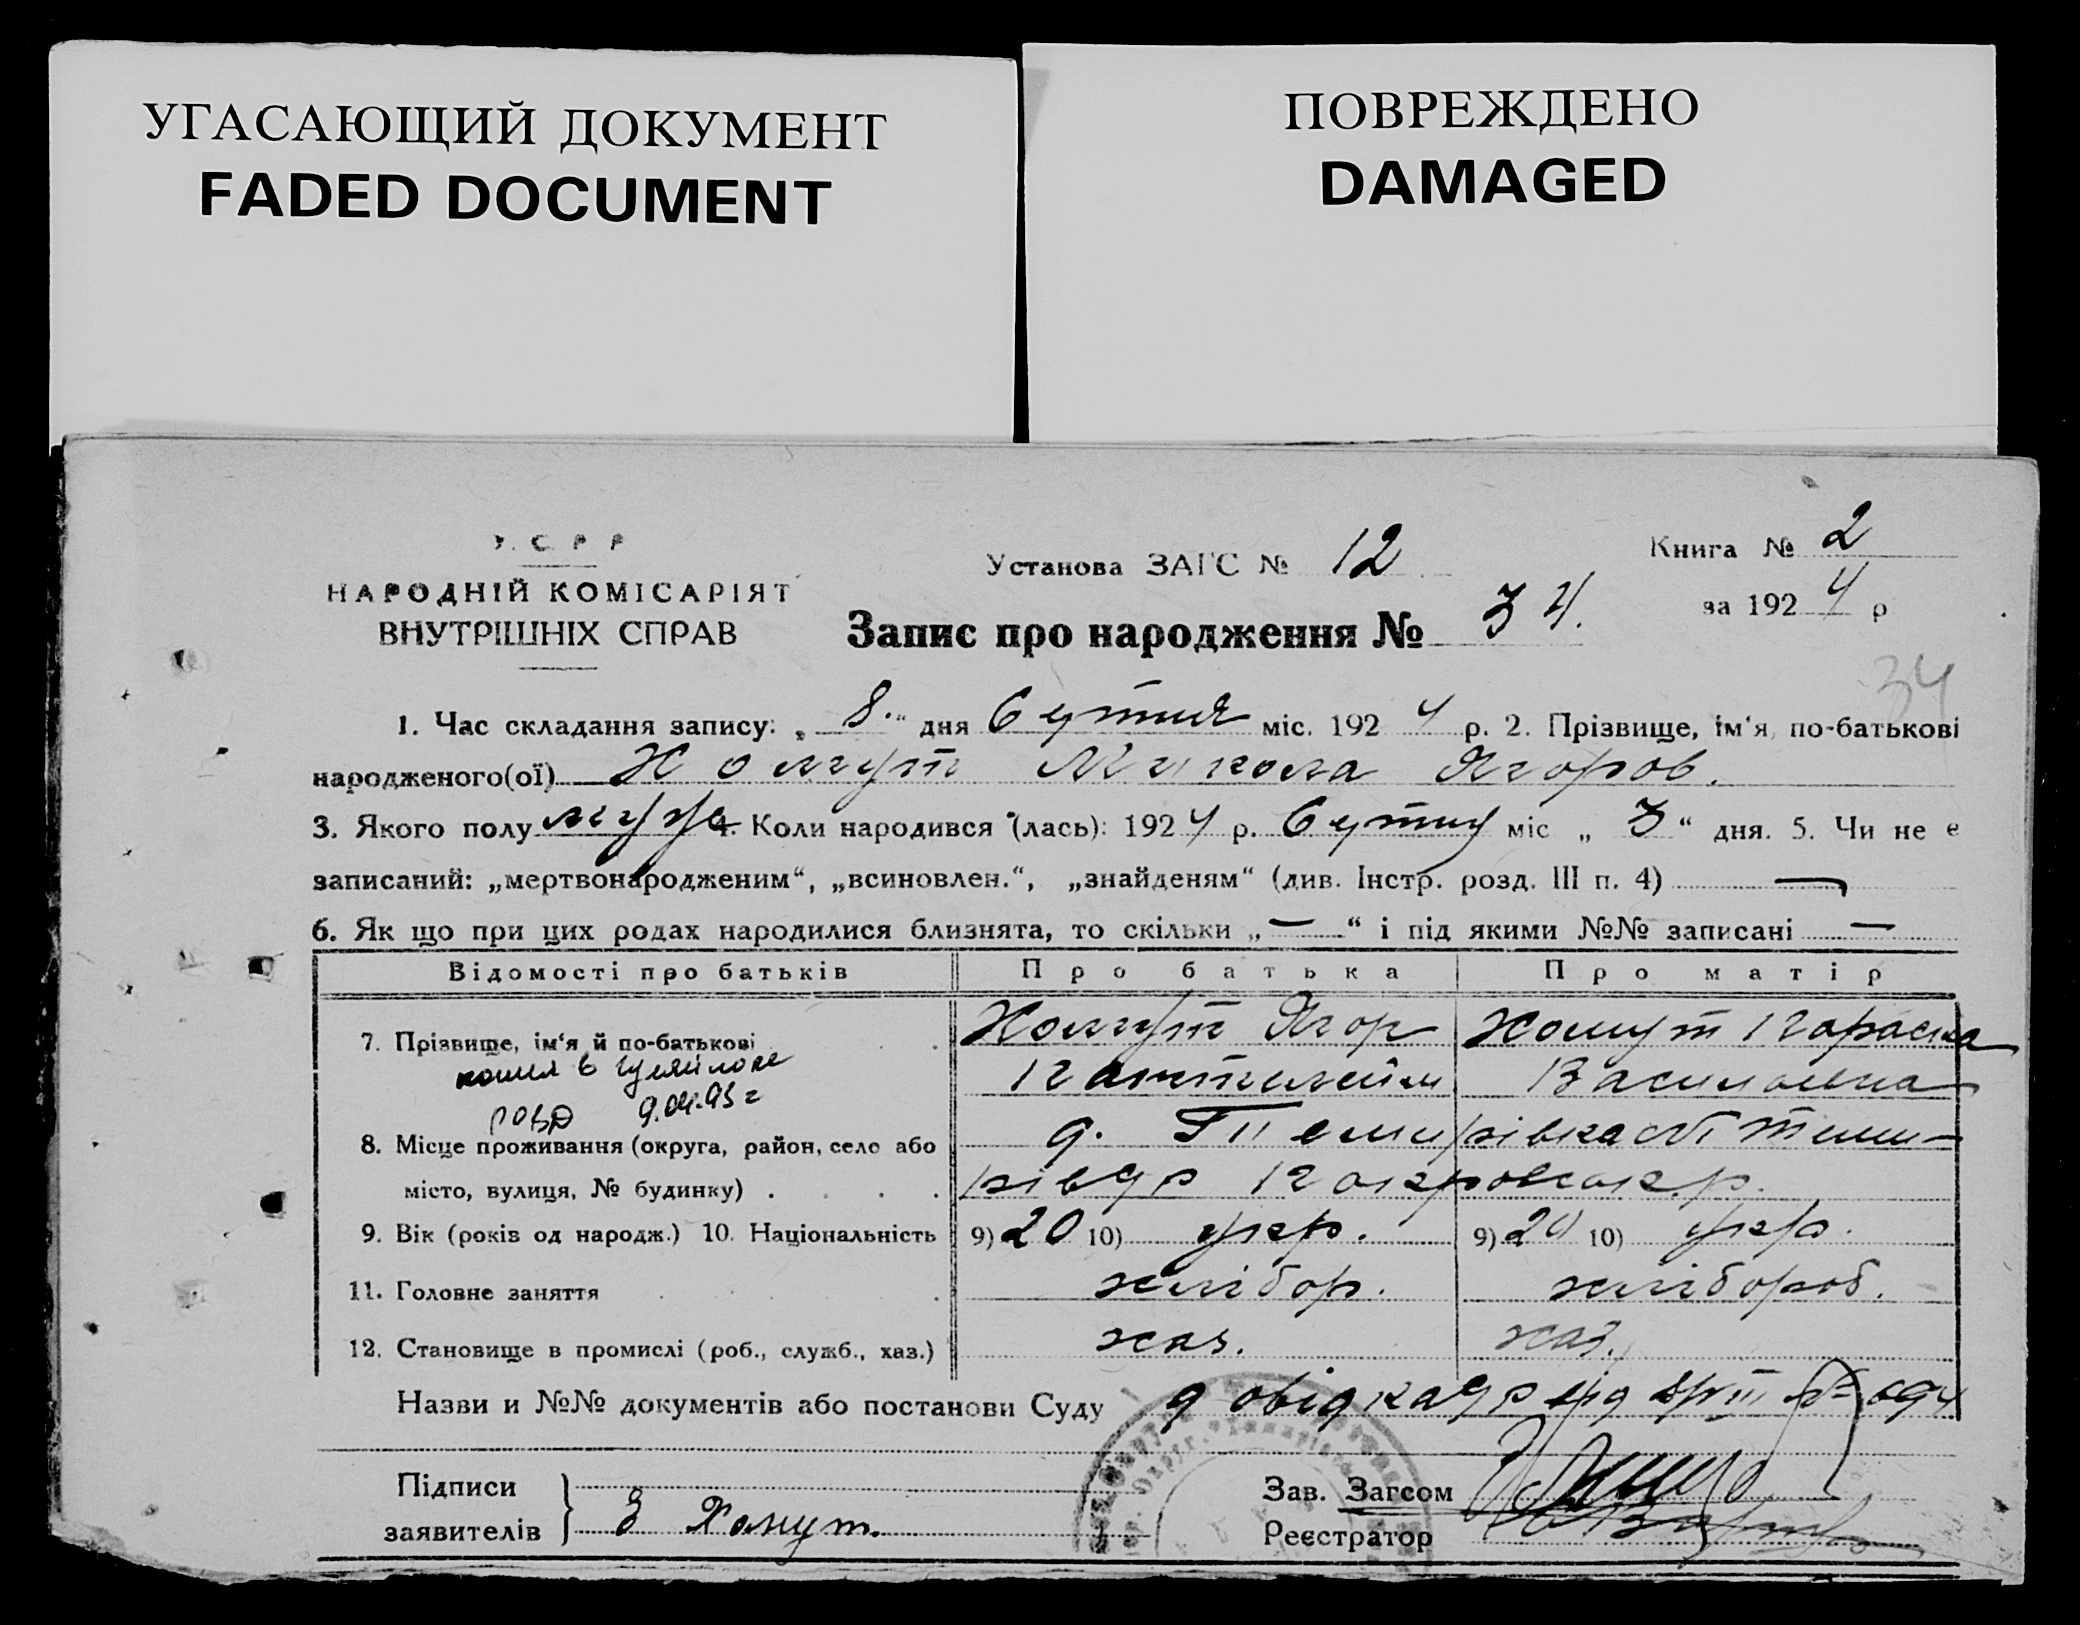 УГАСАЮЩИЙ ДОКУМЕНТ
FADED DOCUMENT
ПОВРЕЖДЕНО
DAMAGED
У. С. Р. Р
НАРОДНІЙ КОМІСАРІЯТ
ВНУТРІШНІХ СПРАВ
Установа ЗАГС № 12
Книга № 2
за 1924 р
Запис про народження № 34.
34
1. Час складання запису: „8.“ дня Сутня міс. 1924 р. 2. Прізвище, ім‘я, по-батькові
народженого(ої) Хомут Микола Ягоров.
3. Якого полу муж 4. Коли народився (лась): 1924 р. Сутня міс „3“ дня. 5. Чи не є
записаний: „мертвонародженим“, „всиновлен.“, „знайденям“ (див. Інстр. розд. III п. 4) —
6. Як що при цих родах народилися близнята, то скільки „—“ і під якими №№ записані —
Відомості про батьків
Про батька
Про матір
7. Прізвище, ім‘я й по-батькові
Хомут Ягор
Хомут Параска
копия в Гуляйполе
Пантилейм
Василовна
РОВД 9.04.93 г
8. Місце проживання (округа, район, село або
місто, вулиця, № будинку)
с. Темирівка
Покровс окр.
9. Вік (років од народж.) 10. Національність
9) 20 10) укр.
9) 20 10) укр.
11. Головне заняття
хлібор.
хлібороб.
12. Становище в промислі (роб., служб., хаз.)
хаз.
хаз.
Назви и №№ документів або постанови Суду довідка
Підписи
заявителів
Хомут.
Зав. Загсом
Реєстратор